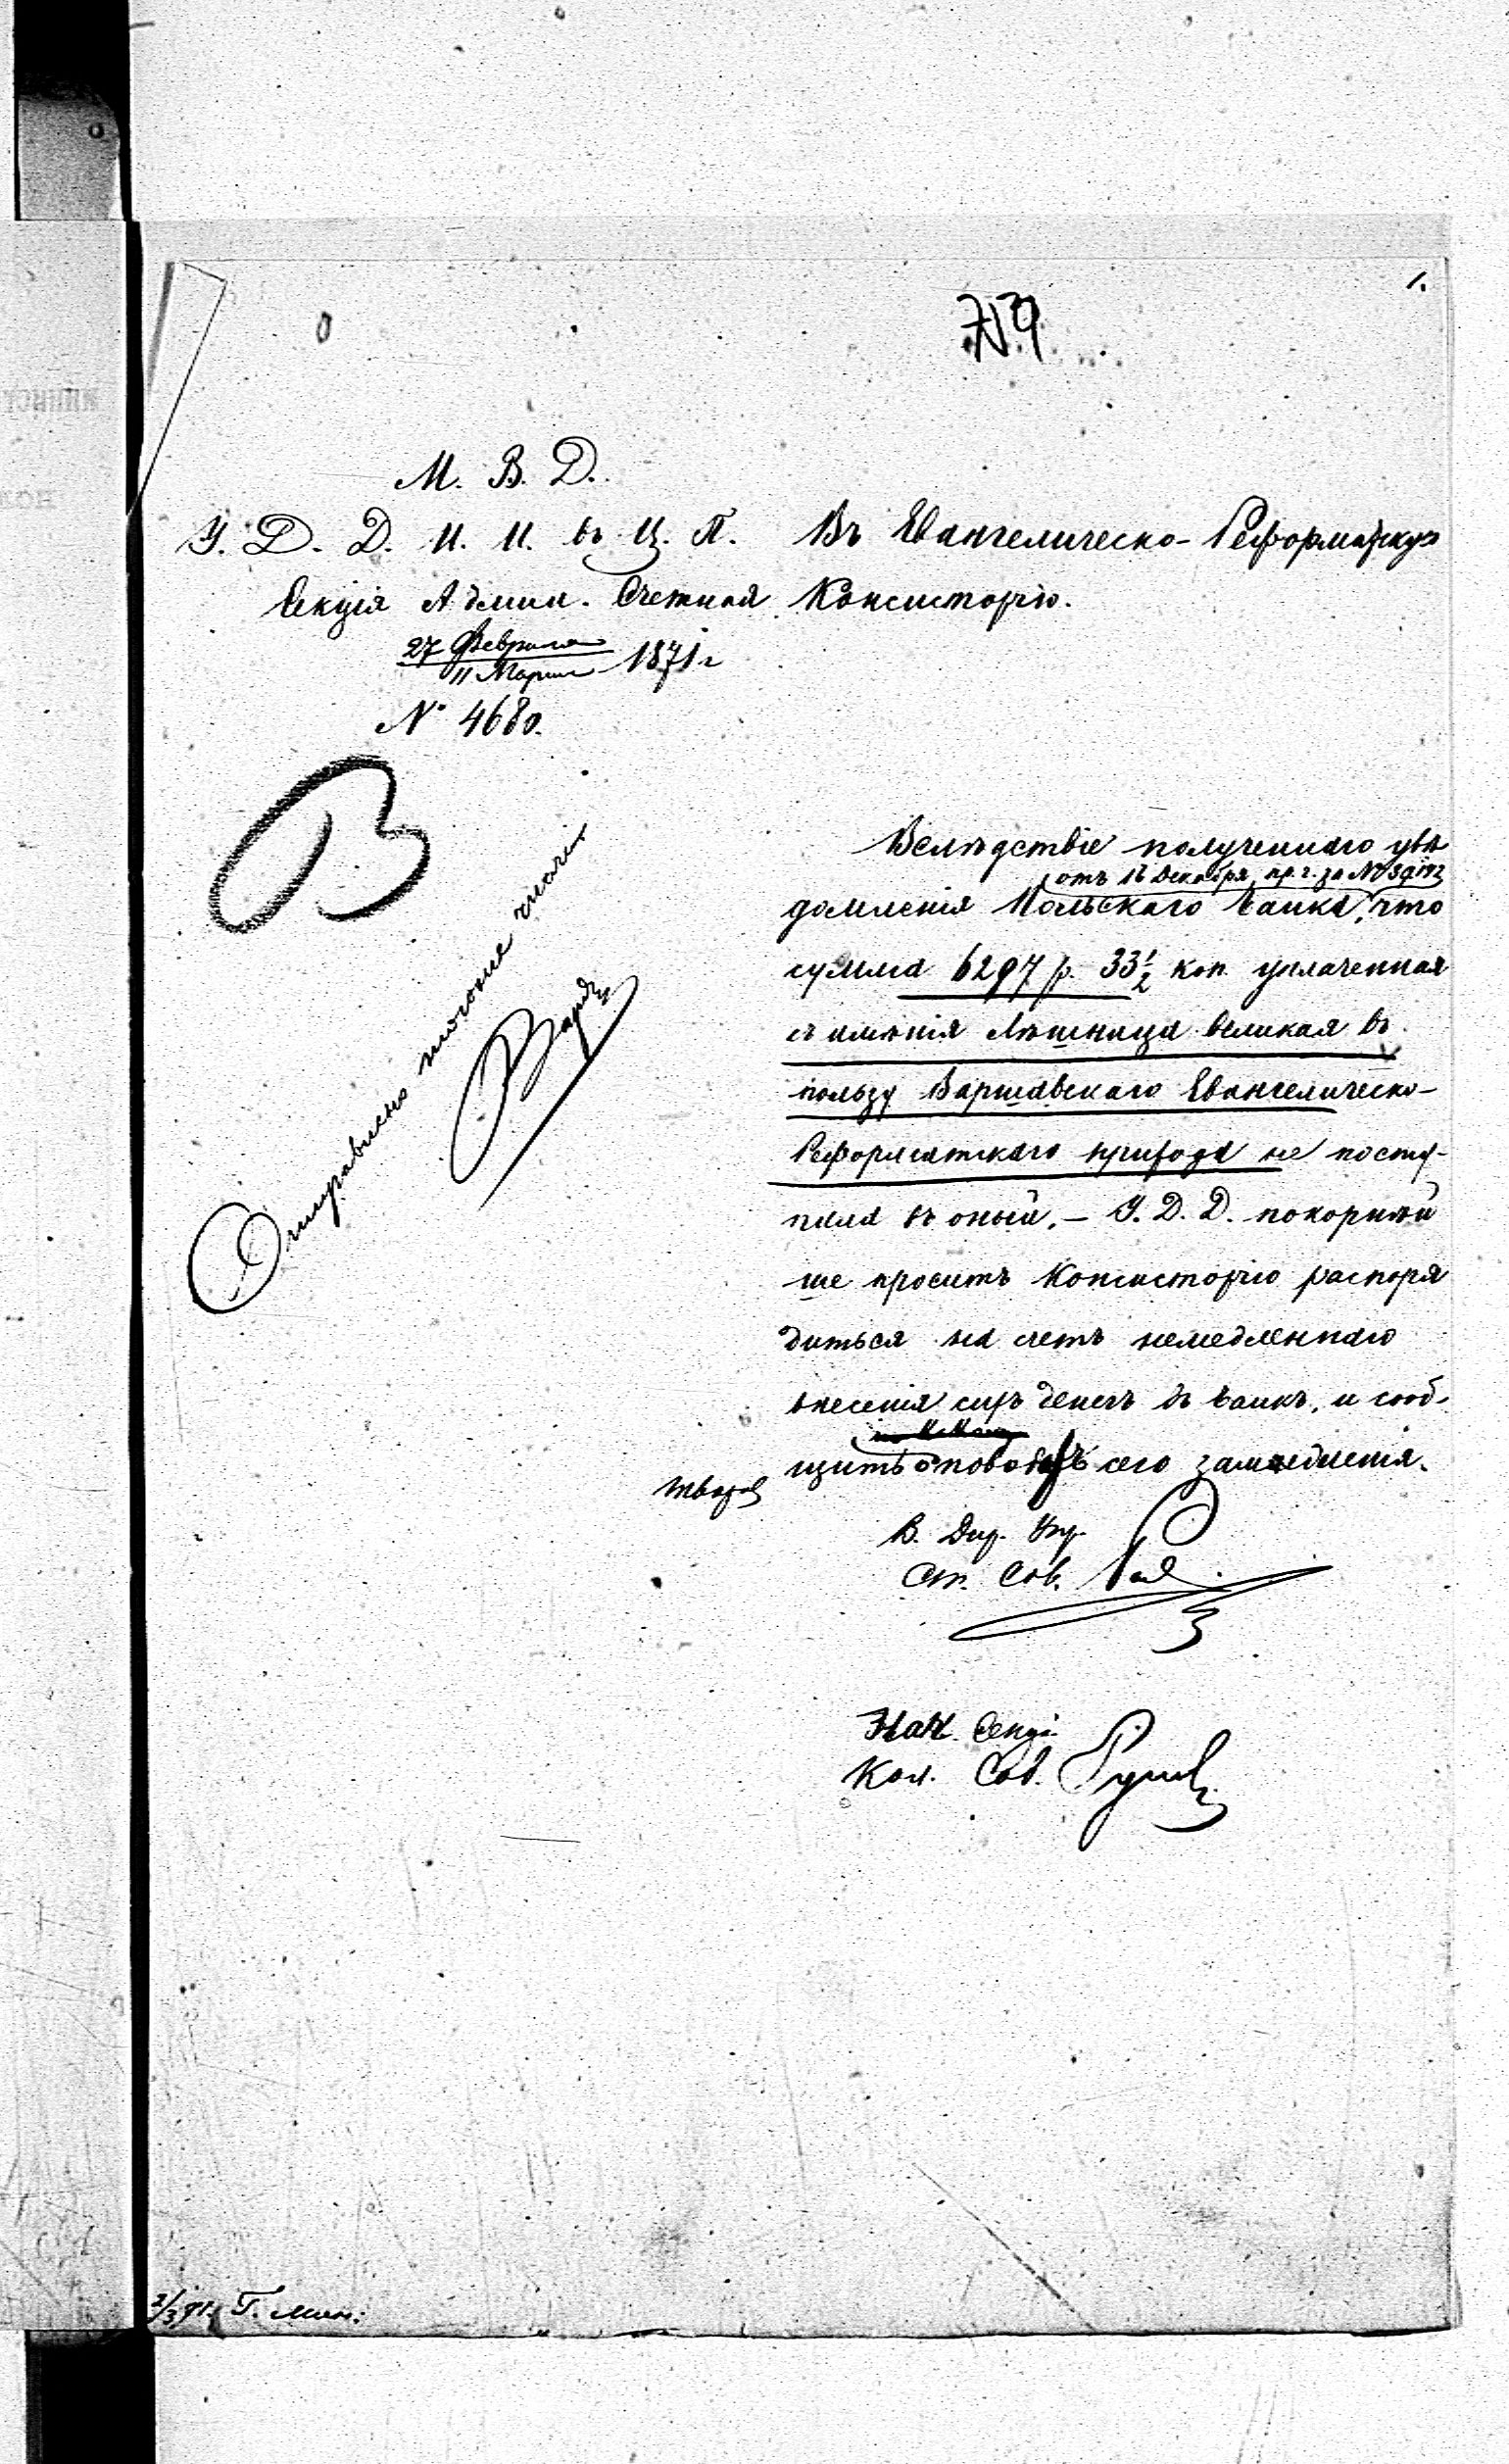 1.
М. В. Д.
У. Д. Д. И. И. въ Ц. П.
Секція Админ. Счетная
27 Февраля
11 Марта 1871 г
№ 4680.
Въ Евангелическо-Реформатскую
Консисторію.
В
Отправлено тогоже числа
Вслѣдствіе полученнаго увѣ
домленія Польскаго Банка,
отъ 16 Декабря пр. г. за №
что
сумма 6297 р. 33 1/2 коп. уплаченная
съ имѣнія Лѣшница великая въ
пользу Варшавскаго Евангелическо-
Реформатскаго прихода не посту-
пила въ оный. – У. Д. Д. покорнѣй
ше проситъ Консисторію распоря
диться на счетъ немедленнаго
внесенія сихъ денегъ въ банкъ, и сооб-
щить о поводахъ сего замедленія.
В. Дир. Упр.
Ст. Сов.
Нач. Секці
Кол. Сов.